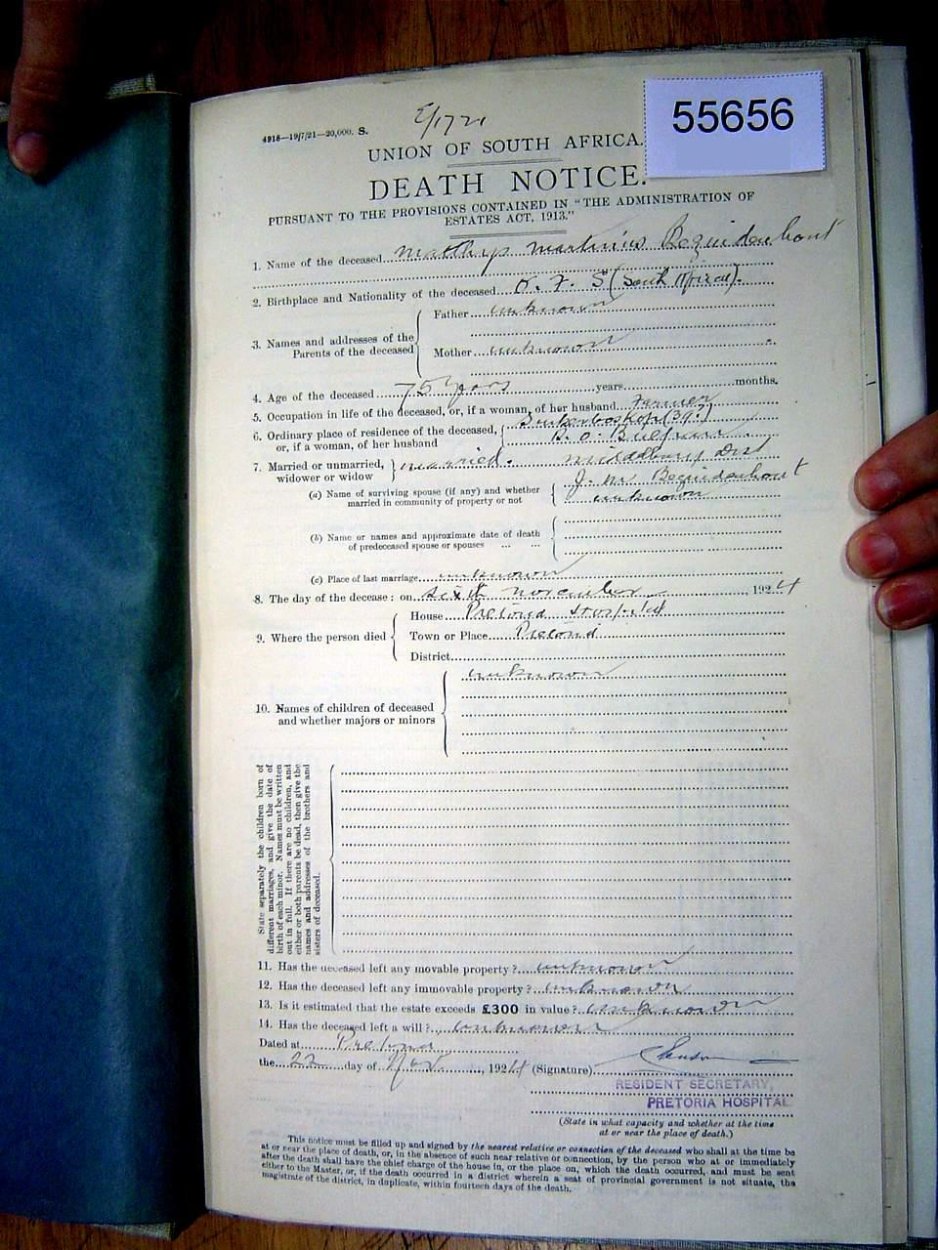 55656
4918—19/7/21—20,000. S.
UNION OF SOUTH AFRICA.
DEATH NOTICE.
PURSUANT TO THE PROVISIONS CONTAINED IN "THE ADMINISTRATION OF
ESTATES ACT, 1913."
1. Name of the deceased Matthys Martinus Bezuidenhout
2. Birthplace and Nationality of the deceased O. F. S (South African).
3. Names and addresses of the Parents of the deceased
Father unknown
Mother unknown
4. Age of the deceased 75 years years months.
5. Occupation in life of the deceased, or, if a woman, of her husband Farmer
6. Ordinary place of residence of the deceased, (39)
or, if a woman, of her husband P. O.
7. Married or unmarried, married. Dist
widower or widow
(a) Name of surviving spouse (if any) and whether J. M. Bezuidenhout
married in community of property or not unknown
(b) Name or names and approximate date of death
of predeceased spouse or spouses ... ...
(c) Place of last marriage unknown
8. The day of the decease: on sixth November 1924
9. Where the person died
House Pretoria Hospital
Town or Place Pretoria
District
unknown
10. Names of children of deceased
and whether majors or minors
State separately the children born of
different marriages, and give the date of
birth of each minor. Names must be written
out in full. If there are no children, and
either or both parents be dead, then give the
names and addresses of the brothers and
sisters of deceased.
11. Has the deceased left any movable property? unknown
12. Has the deceased left any immovable property? unknown
13. Is it estimated that the estate exceeds £300 in value? unknown
14. Has the deceased left a will? unknown
Dated at Pretoria
the 22 day of Nov. , 1924 (Signature)
RESIDENT SECRETARY,
PRETORIA HOSPITAL
(State in what capacity and whether at the time
at or near the place of death.)
This notice must be filled up and signed by the nearest relative or connection of the deceased who shall at the time be
at or near the place of death, or, in the absence of such near relative or connection, by the person who at or immediately
after the death shall have the chief charge of the house in, or the place on, which the death occurred, and must be sent
either to the Master, or, if the death occurred in a district wherein a seat of provincial government is not situate, the
magistrate of the district, in duplicate, within fourteen days of the death.